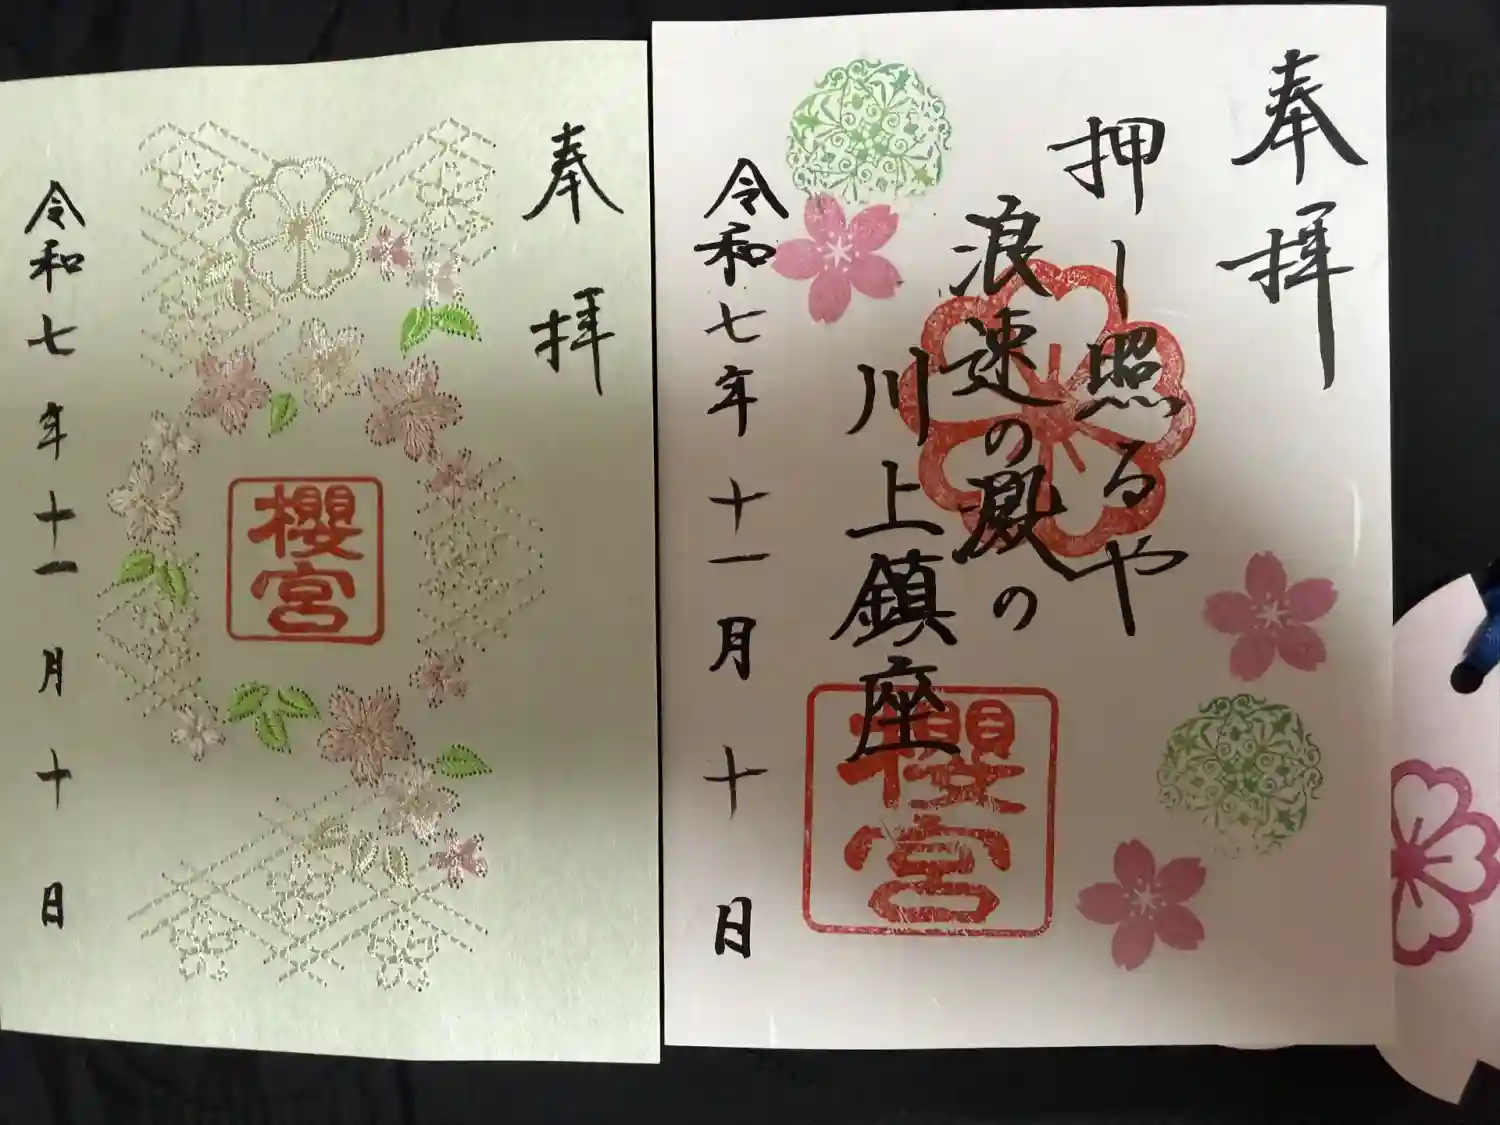 奉拝
櫻宮
令和七年十一月十日
奉拝
押し照るや
浪速の の
川上鎮座
櫻宮
令和七年十一月十日